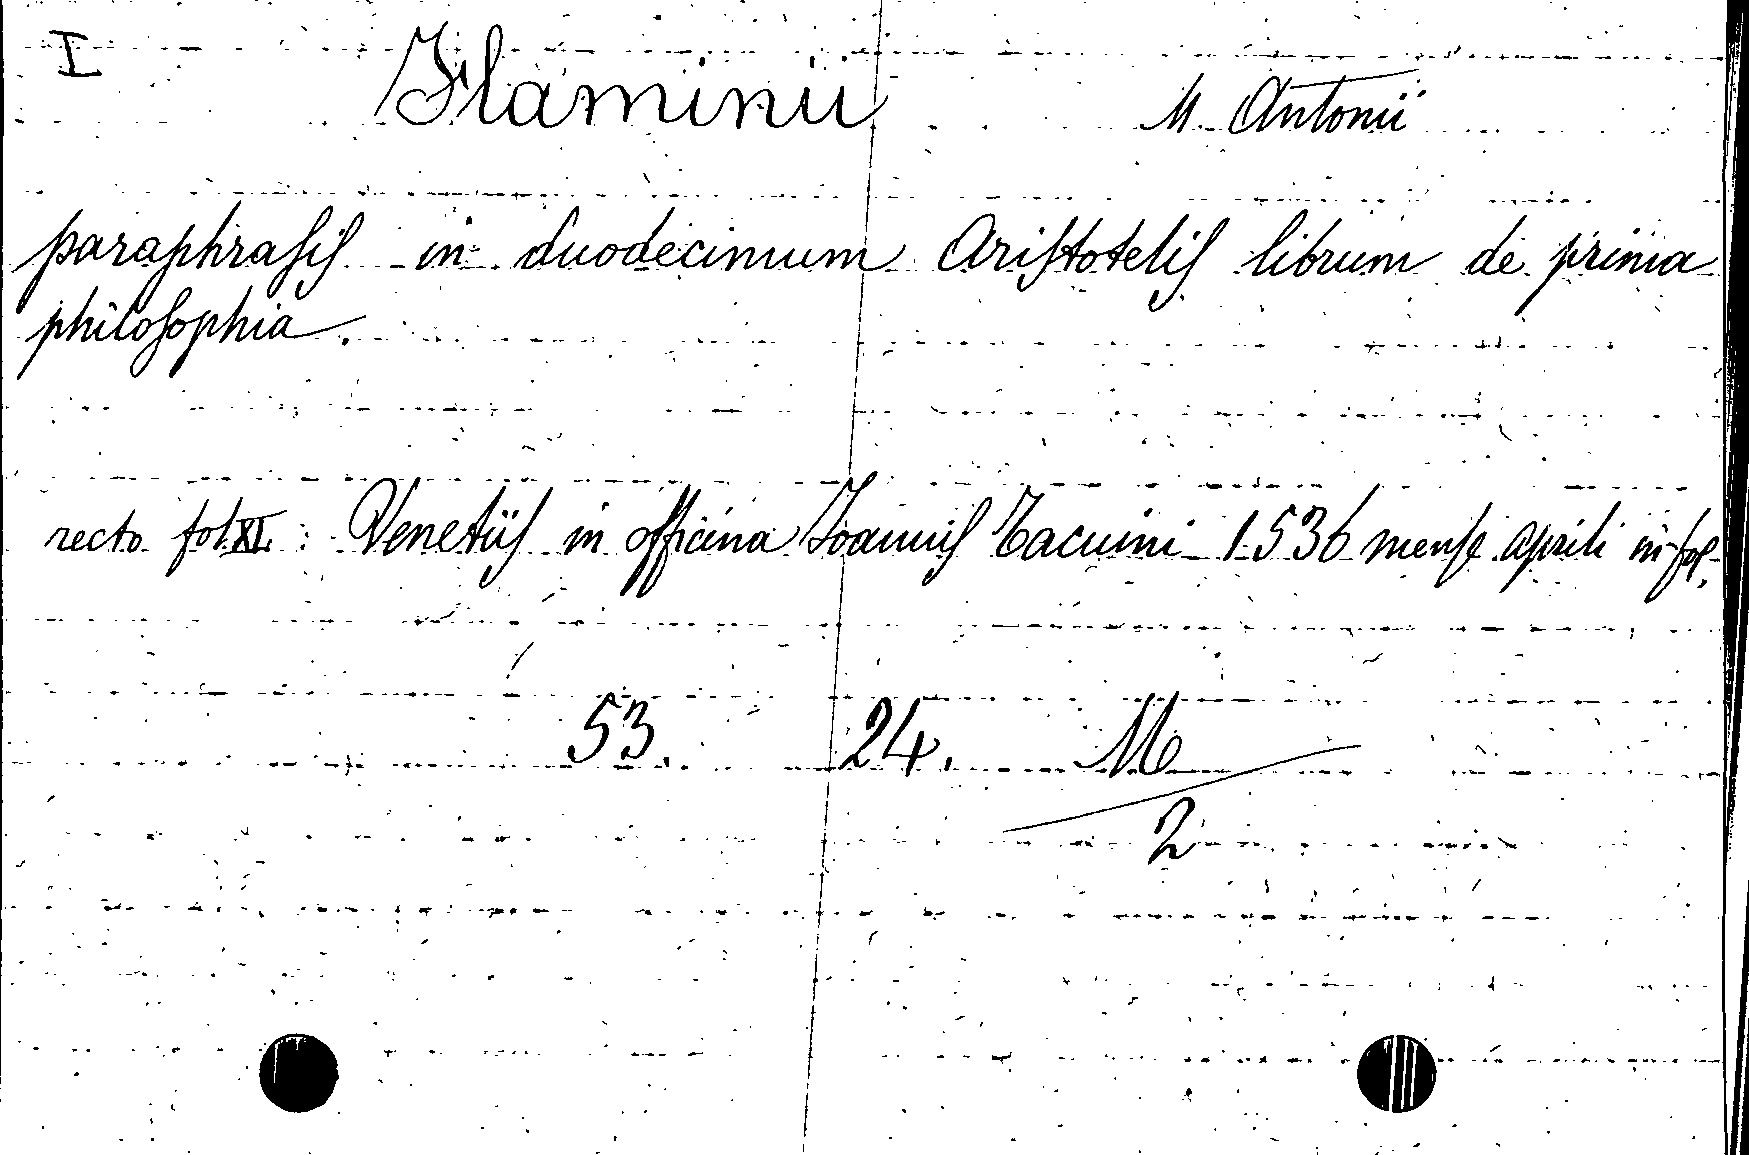 I Flaminii M. Antonii
paraphrasis in duodecimum Aristotelis librum de prima
philosophia.
recto fol. XI: Venetiis in officina Joannis Tacuini 1536 mense aprili in fol.
53. 24. M
2